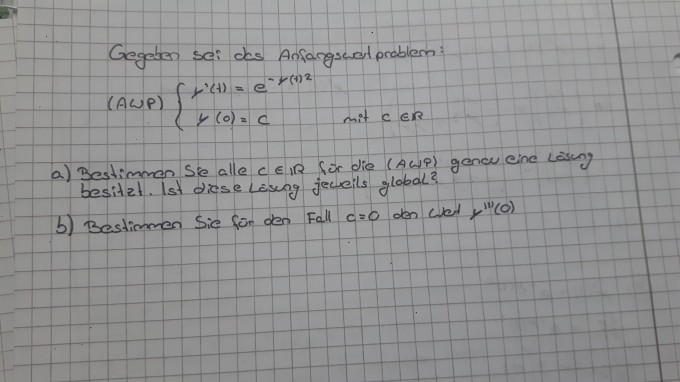 Gegeben sei das Anfangswertproblem:
(AWP) { y'(t) = e^{-y(t)^2}
y(0) = c mit c ∈ ℝ
a) Bestimmen Sie alle c ∈ ℝ für die (AWP) genau eine Lösung
besitzt. Ist diese Lösung jeweils global?
b) Bestimmen Sie für den Fall c=0 den Wert y'''(0)